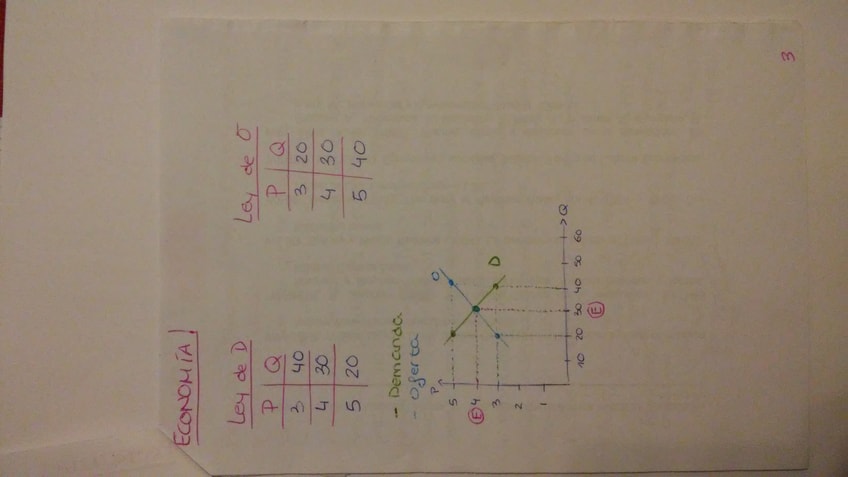 ECONOMÍA
Ley de D
P Q
3 40
4 30
5 20
Ley de O
P Q
3 20
4 30
5 40
- Demanda
- Oferta
P
5
E 4
3
2
1
O
D
10 20 30 40 50 60 > Q
E
3